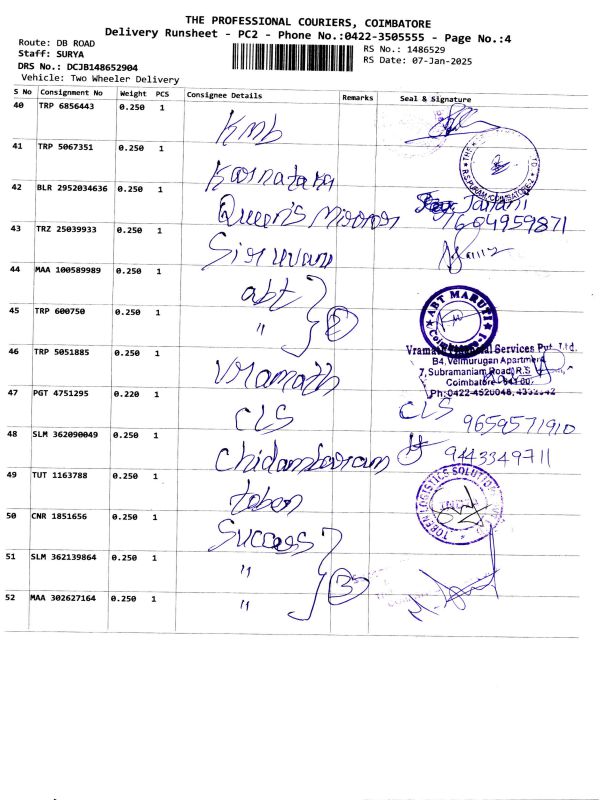 THE PROFESSIONAL COURIERS, COIMBATORE
Delivery Runsheet - PC2 - Phone No.:0422-3505555 - Page No.:4
Route: DB ROAD
RS No.: 1486529
Staff: SURYA
RS Date: 07-Jan-2025
DRS No.: DCJB148652904
Vehicle: Two Wheeler Delivery
S No Consignment No Weight PCS Consignee Details Remarks Seal & Signature
40 TRP 6856443 0.250 1 Kmb
41 TRP 5067351 0.250 1 Karnataka
42 BLR 2952034636 0.250 1 Queen's Mirror Janani
7604959871
43 TRZ 25039933 0.250 1 Siruvani
44 MAA 100589989 0.250 1 abt
ABT MARUTI
Coimbatore-1
45 TRP 600750 0.250 1 " 2
46 TRP 5051885 0.250 1 Vramath
Services Pvt. Ltd.
B4, Velmurugan Apartment
7, Subramaniam Road, R.S
Coimbatore
Ph:0422-4520048,
47 PGT 4751295 0.220 1 CLS CLS
9659571910
48 SLM 362090049 0.250 1 Chidambaram 9443349711
49 TUT 1163788 0.250 1 toben
TOBEN LOGISTICS SOLUTION
50 CNR 1851656 0.250 1 Success
51 SLM 362139864 0.250 1 " 3
52 MAA 302627164 0.250 1 "